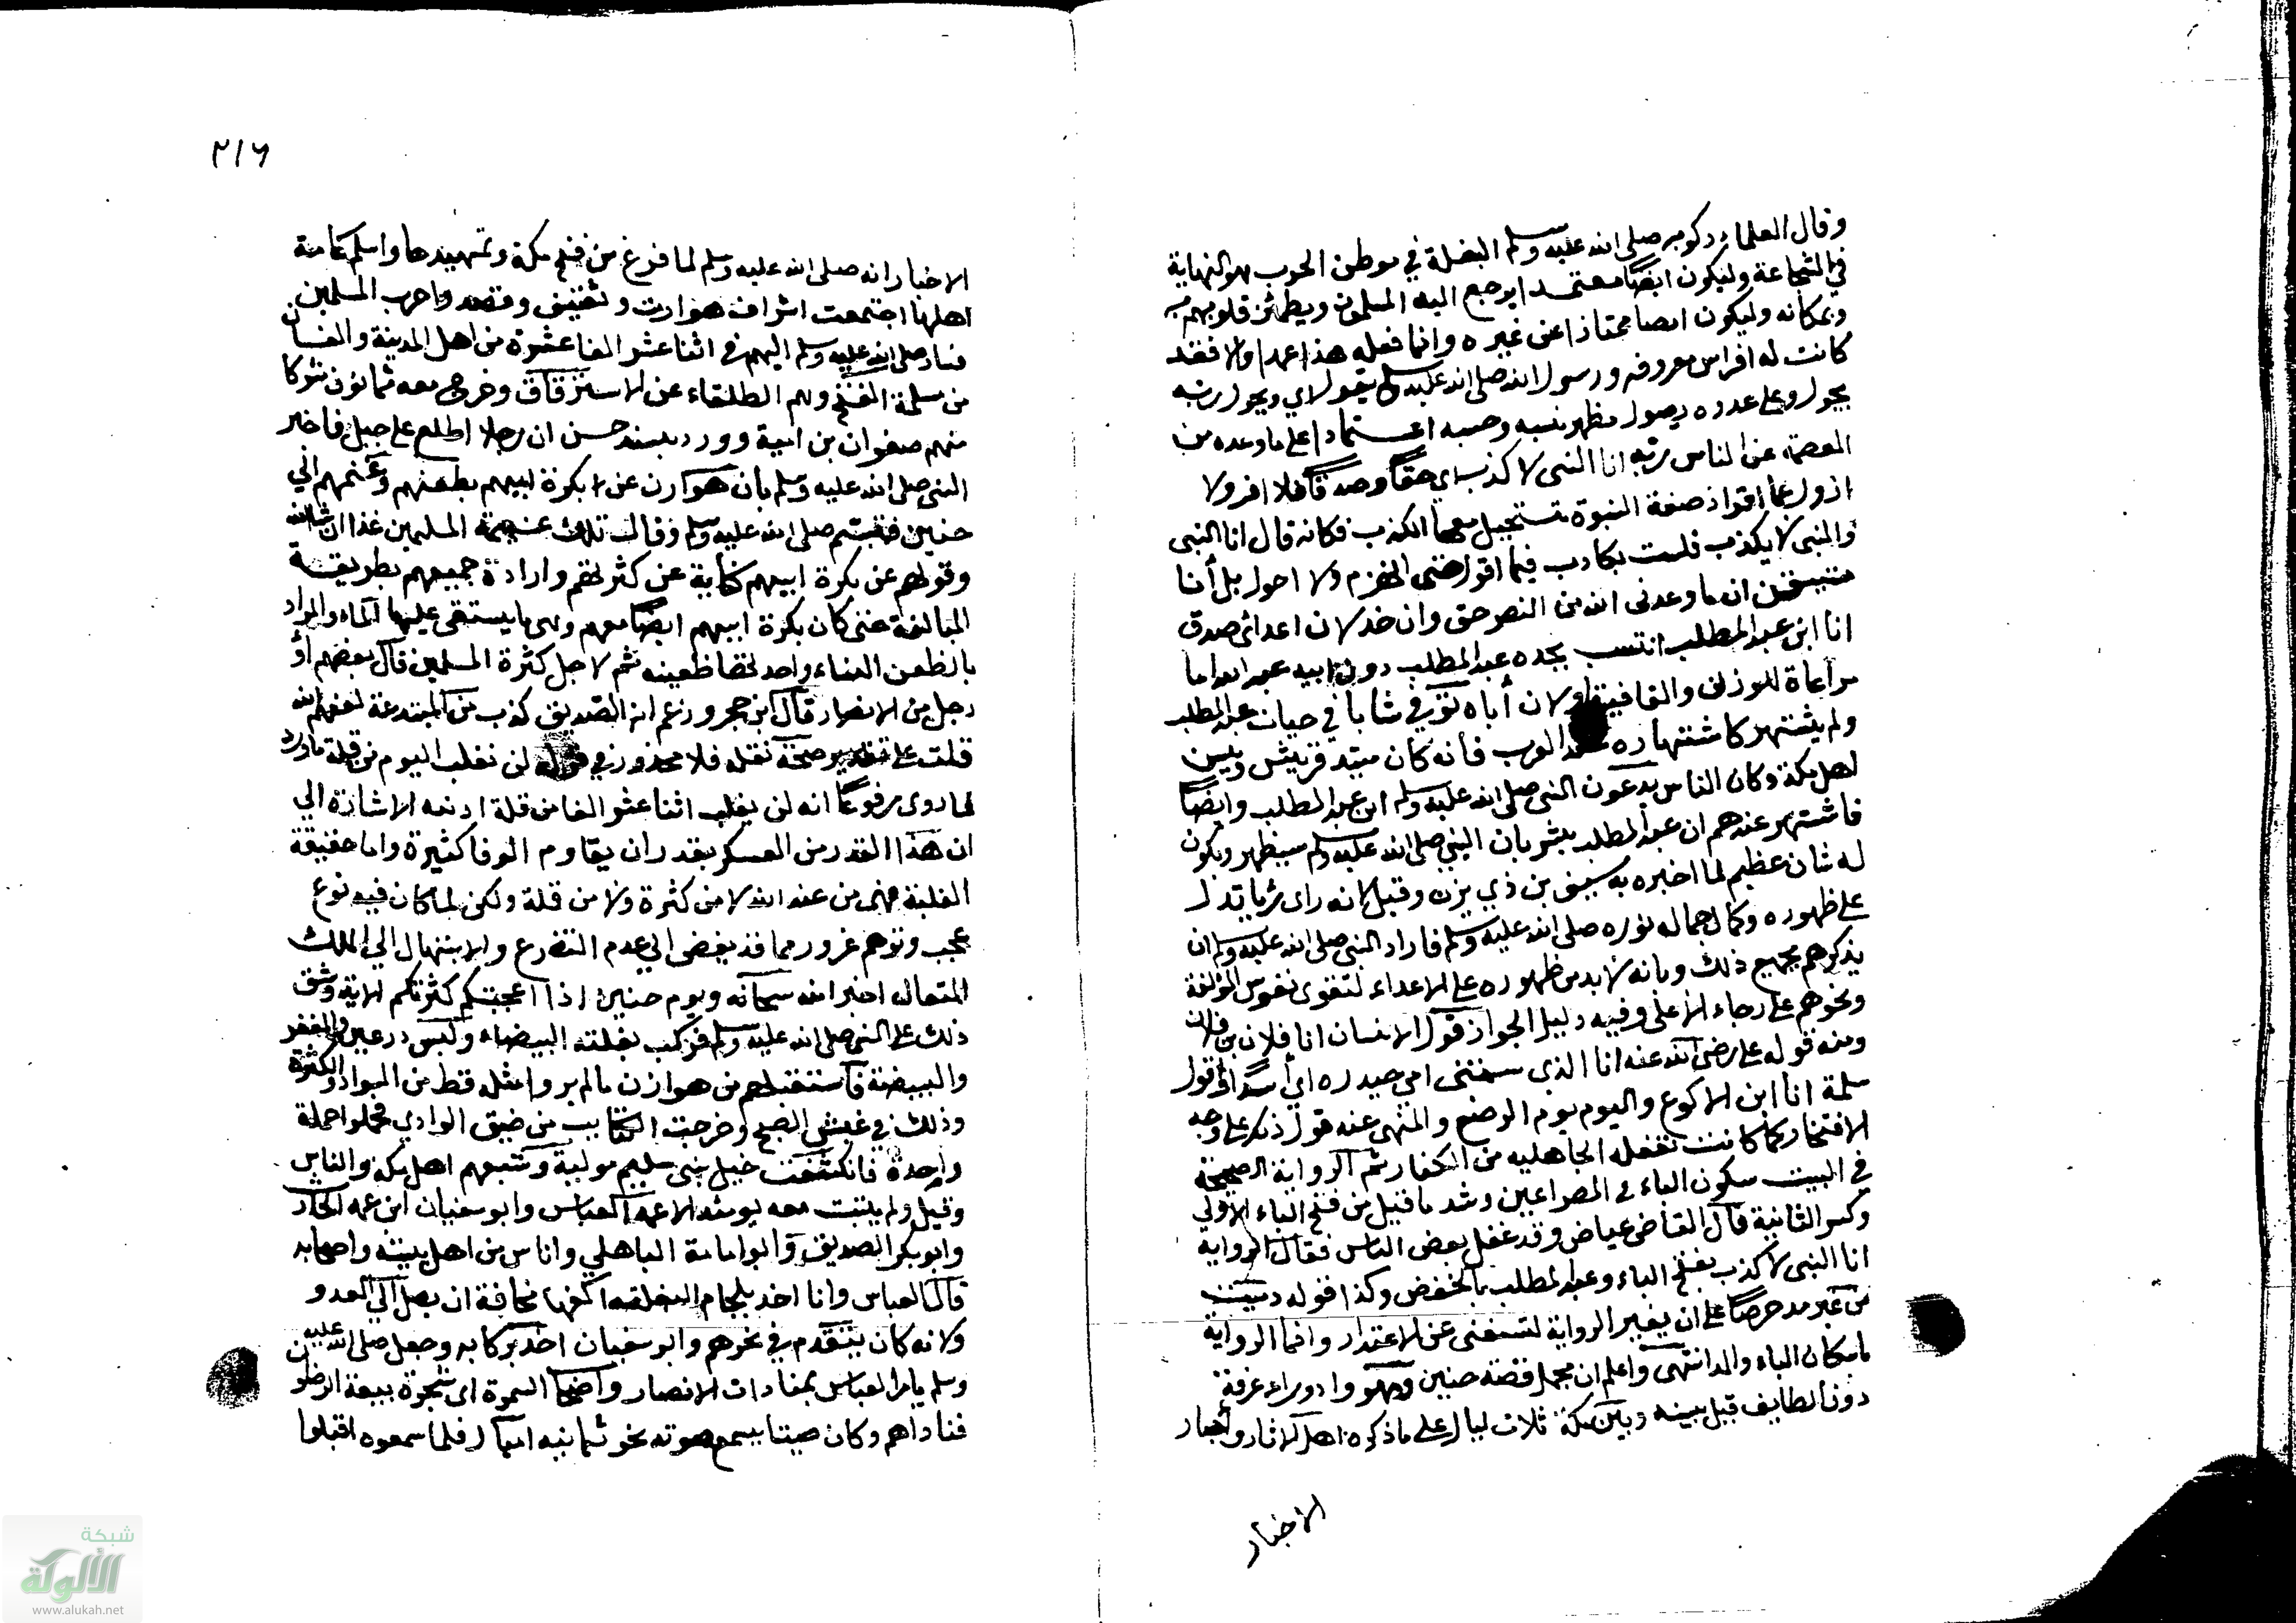 وقال العلماء ركوبه صلى الله عليه وسلم البغلة في موطن الحرب هو النهاية
في الشجاعة وليكون ايضا معتمدا يرجع اليه المسلمون ويطمئن قلوبهم به
وبمكانه وليكون ايضا ممتازا عن غيره وانما فعله هذا عمدا والا فقد
كانت له افراس معروفه ورسول الله صلى الله عليه وسلم يقول اي ويجول
يجول وعلى عدوه يصول مظهر نسبه وحسبه اعتمادا على ما وعده من
العصمة عن الناس ربه انا النبي لا كذب اي حقا وصدقا فلا افر ولا
ازول عما اقول اذ صفة النبوة تستحيل معها الكذب فكانه قال انا النبي
والنبي لا يكذب فلست بكاذب فيما اقول حتى انهزم ولا احول بل أنا
متيقن ان ما وعدني الله من النصر حق وان خذلان اعدائي صدق
انا ابن عبد المطلب انتسب بجده عبد المطلب دون ابيه عبد الله اما
مراعاة للوزن والقافية او لان أباه توفي شابا في حيات عبد المطلب
ولم يشتهر كاشتهاره عند العرب فانه كان سيد قريش
اهل مكة وكان الناس يدعون النبي صلى الله عليه وسلم ابن عبد المطلب وايضا
فاشتهر عندهم ان عبد المطلب بشر بان النبي صلى الله عليه وسلم سيظهر ويكون
له شان عظيم لما اخبره به سيف بن ذي يزن وقيل لانه راى رؤيا تدل
على ظهوره وكمال جماله نوره صلى الله عليه وسلم فاراد النبي صلى الله عليه وسلم ان
يذكرهم بجميع ذلك وبانه لا بد من ظهوره على الاعداء لتقوى نفوس المؤلفة
ونحوهم على رجاء الاعلى وفيه دليل لجواز قول الانسان انا فلان بن فلان
ومنه قوله علي رضي الله عنه انا الذي سمتني امي حيدره اي أسدا وقول
سلمة انا ابن الاكوع واليوم يوم الرضع والمنهي عنه قول ذلك على وجه
الافتخار كما كانت تفعله الجاهليه من الكفار ثم الرواية الصحيحة
في البيت سكون الباء في المصراعين وشذ ما قيل من فتح الباء الاولى
وكسر الثانية قال القاضي عياض وقد غفل بعض الناس فقال الرواية
انا النبي لا كذب بفتح الباء وعبد المطلب بالخفض وكذا قوله دميت
من غير مد حرصا على ان يغير الرواية لتستغني عن الاعتذار وانما الرواية
باسكان الباء والمد انتهى واعلم ان مجمل قصة حنين وهو واد وراء عرفة
دون الطايف قيل بينه وبين مكة ثلاث ليال على ما ذكره اهل الاثار وأخبار
الاخبار
٢١٦
الاخبار انه صلى الله عليه وسلم لما فرغ من فتح مكة وتمهيدها واسلم عامة
اهلها اجتمعت اشراف هوازن وثقيف وقصدوا حرب المسلمين
فسار صلى الله عليه وسلم اليهم في اثنا عشر الفا عشرة من اهل المدينة والفان
من مسلمة الفتح وهم الطلقاء عن الاسترقاق وخرج معه ثمانون مشركا
منهم صفوان بن امية وورد بسند حسن ان رجلا اطلع على جبل فاخبر
النبي صلى الله عليه وسلم بان هوازن عن بكرة ابيهم بظعنهم وغنمهم الى
حنين فتبسم صلى الله عليه وسلم وقال تلك غنيمة المسلمين غدا ان شاء الله
وقولهم عن بكرة ابيهم كناية عن كثرتهم وارادة جميعهم بطريقة
المبالغة حتى كان بكرة ابيهم ايضا معهم وهي ما يستقى عليها الماء والمراد
بالظعن النساء واحدتها ظعينه ثم لاجل كثرة المسلمين قال بعضهم أو
رجل من الانصار قال ابن حجر وزعم انه الصديق كذب من المبتدعة لعنهم الله
قلت على تقدير صحة نقله فلا محذور في قوله لن نغلب اليوم من قلة ما ورد
لما روى مرفوعا انه لن يغلب اثنا عشر الفا من قلة اد نعه الاشارة الى
ان هذا القدر من العسكر يقدر ان يقاوم الوفا كثيرة واما حقيقة
الغلبة فهي من عند الله لا من كثرة ولا من قلة ولكن لما كان فيه نوع
عجب وتوهم غرور مما قد يفضي الى عدم التضرع والابتهال الى الملك
المتعال اخبر الله سبحانه ويوم حنين اذا اعجبتكم كثرتكم الاية وشق
ذلك على النبي صلى الله عليه وسلم فركب بغلته البيضاء ولبس درعين والمغفر
والبيضة فاستقبلهم من هوازن ما لم يروا مثله قط من السواد والكثرة
وذلك في غبش الصبح وخرجت الكتايب من ضيق الوادي فحملوا حملة
واحدة فانكشفت خيل بني سليم مولية وتبعهم اهل مكة والناس
وقيل ولم يثبت معه يومئذ الا عمه العباس وابو سفيان ابن عمه الحارث
وابو بكر الصديق وابو امامة الباهلي واناس من اهل بيته واصحابه
قال العباس وانا اخذ بلجام البغلته اكفها مخافة ان يصل الى العدو
ولانه كان يتقدم في نحرهم وابو سفيان اخذ بركابه وجعل صلى الله عليه
وسلم يامر العباس بمنادات الانصار واصحاب السمرة اى شجرة بيعة الرضوان
فناداهم وكان صيتا يسمع صوته نحو ثمانيه اميال فلما سمعوه اقبلوا
شبكة
الألوكة
www.alukah.net